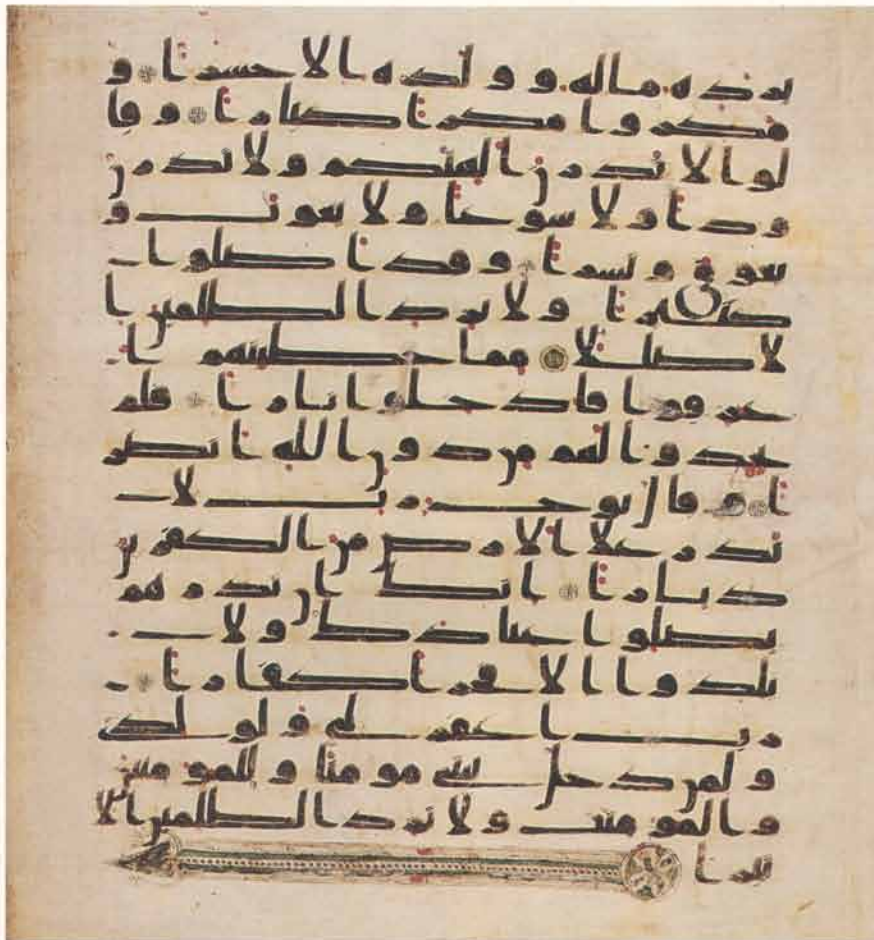 يزده ماله و ولده ا لا خسرا و
مكروا مكرا كبارا وقا
لوا لا تذرن الهتكم ولا تذرن
ودا ولا سوعا ولا يغوث و
يعوق ونسرا وقد اضلوا
كثيرا ولا تزد الظلمين ا
لا ضللا مما خطيتهم ا
غرقوا فادخلوا نارا فلم
يجدوا لهم من دون الله انصر
ا وقال نوح رب لا
تذر علا الارض من الكفرين
ديارا انك ان تذرهم
يضلوا عبادك ولا
يلدوا الا فجرا كفارا
رب اغفر لي ولولدي
ولمن دخل بيتي مومنا وللمومنين
والمومنت ولا تزد الظلمين الا
تبرا